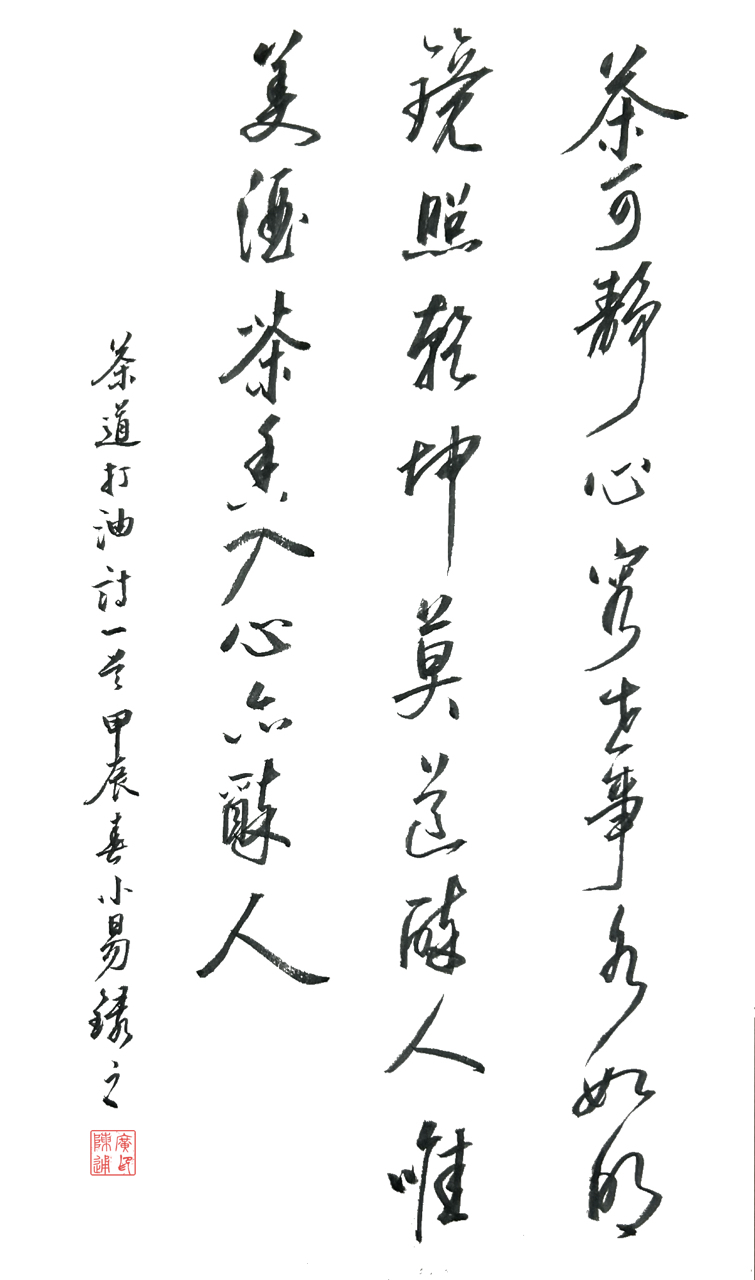 茶可靜心容世事水如明
鏡照乾坤莫道醉人唯
美酒茶香入心亦醉人
茶道打油詩一首甲辰春小易錄之
廣民
陳